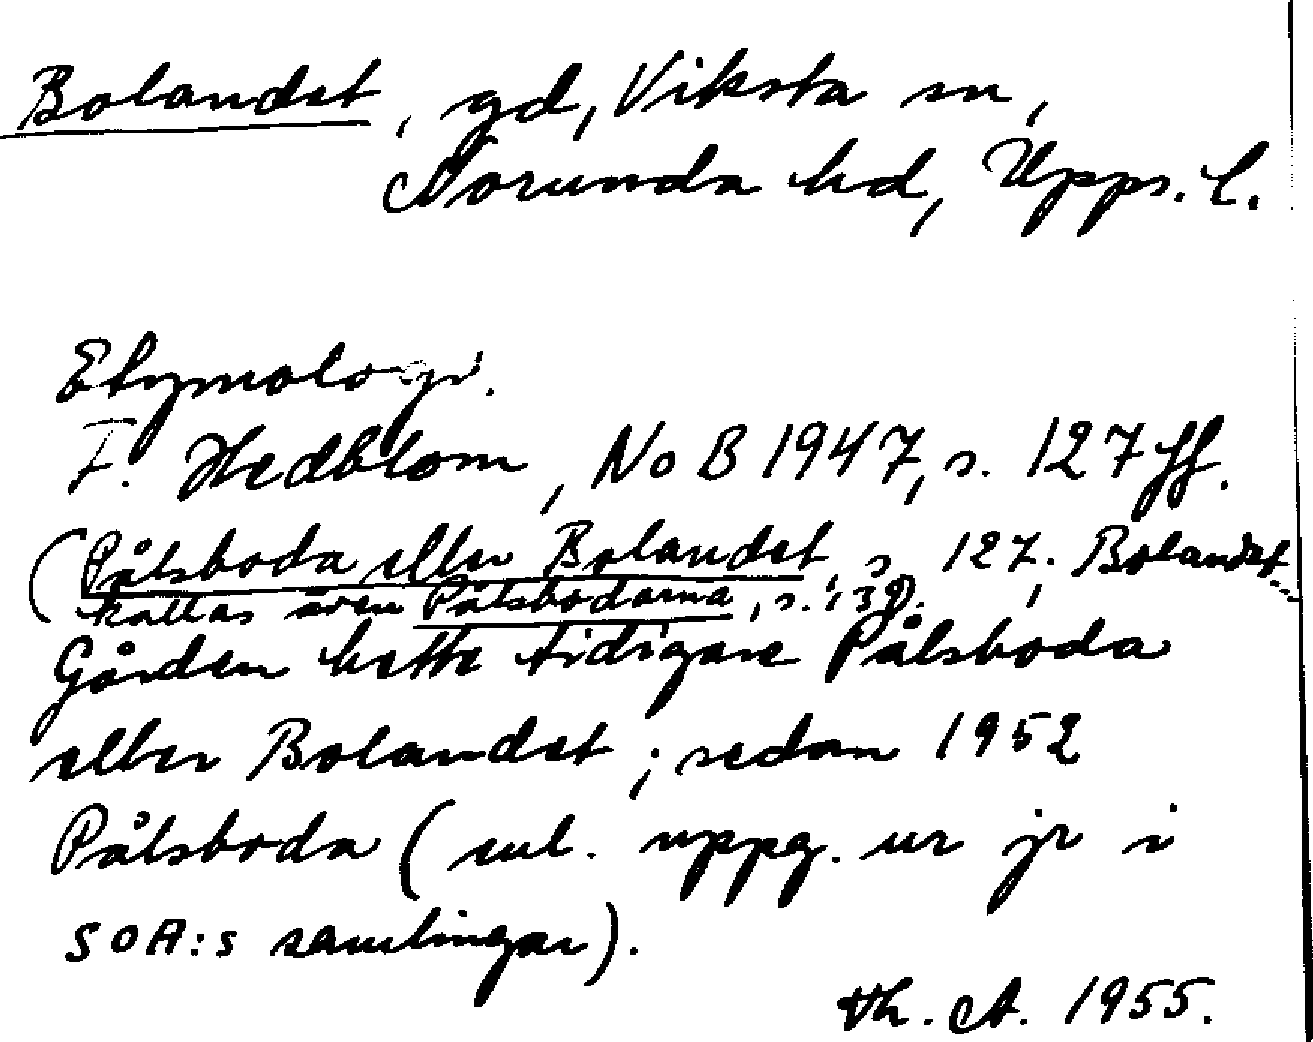 Bolandet, gd, Viksta sn,
Norunda hd, Upps. l.
Etymologi.
F. Hedblom, NoB 1947, s. 127 ff.
(Pålsboda eller Bolandet s. 127; Bolandet
kallas även Pålsbodarna, s. 139).
Gården hette tidigare Pålsboda
eller Bolandet; sedan 1952
Pålsboda (enl. uppg. ur jr i
SOA:s samlingar).
Th. A. 1955.